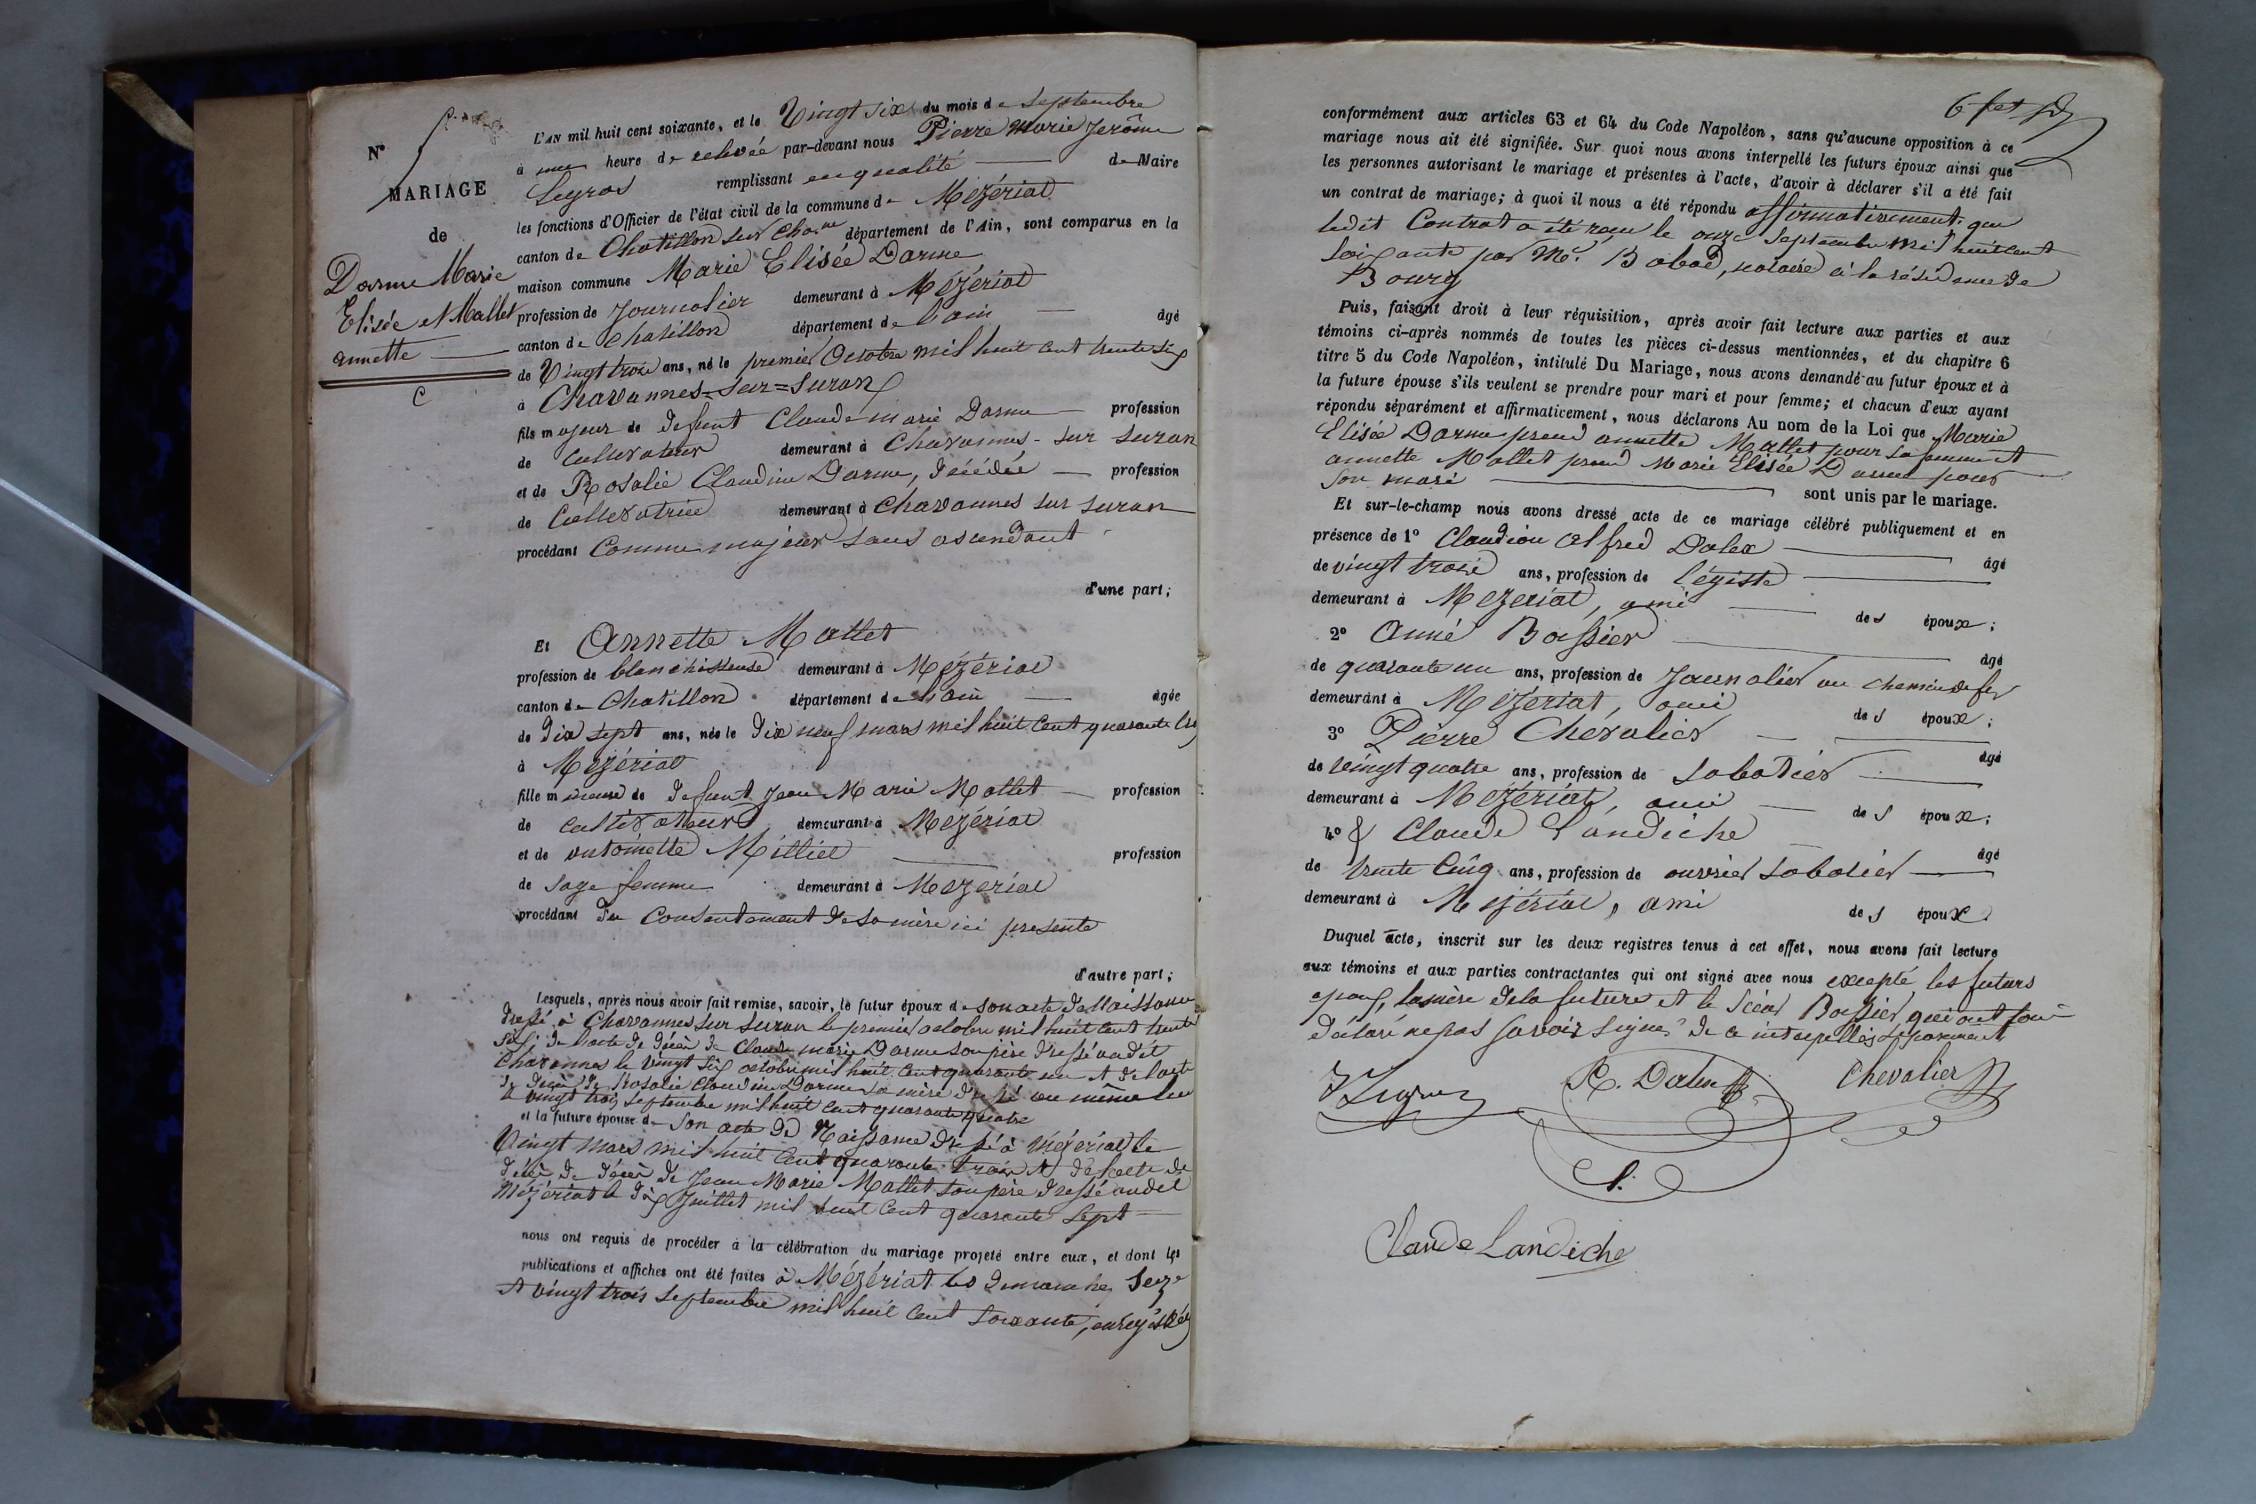 N°
MARIAGE
de
Darme Marie
Elisée et Mallet
annette
C
L'AN mil huit cent soixante, et le Vingt six du mois de Septembre
à une heure de relevée par-devant nous Pierre Marie Jerôme
remplissant en qualité de Maire
les fonctions d'Officier de l'état civil de la commune de Mézériat
canton de Chatillon sur Chal.ne département de l'Ain, sont comparus en la
maison commune Marie Elisée Darme
profession de Journalier demeurant à Mézériat
canton de Chatillon département de l'ain âgé
de Vingt trois ans, né le premier Octobre mil huit cent trente six
à Chavannes-sur=Suran
fils majeur de defunt Claude marie Darme profession
de Cultivateur demeurant à Chavannes-sur Suran
et de Rosalie Claudine Darme, décédée profession
de Cultivatrice demeurant à Chavannes sur Suran
procédant Comme majeur sans ascendant
d'une part;
Et Annette Mallet
profession de blanchisseuse demeurant à Mézériat
canton de Chatillon département de l'ain âgée
de Dix sept ans, née le Dix neuf mars mil huit Cent quarante trois
à Mézériat
fille mineure de defunt Jean Marie Mallet profession
de cultivateur demeurant à Mézériat
et de antoinette Milliet profession
de Sage femme demeurant à Mézériat
procédant du Consentement de sa mère ici presente
d'autre part;
Lesquels, après nous avoir fait remise, savoir, le futur époux de son acte de Naissance
dressé à Chavannes sur Suran le premier octobre mil huit Cent trente
six; de l'acte de décès de Claude marie Darme son père dressé audit
Chavannes le vingt six octobre mil huit Cent quarante un et de l'acte
de décès de Rosalie Claudine Darme sa mère dressé au même lieu
le vingt trois septembre mil huit Cent quarante quatre
et la future épouse de Son acte de Naissance dressé à Mézériat le
Vingt mars mil huit Cent quarante trois et de l'acte de
décès de Jean Marie Mallet son père dressé audit
Mézériat le dix Juillet mil huit Cent quarante Sept
nous ont requis de procéder à la célébration du mariage projeté entre eux, et dont les
publications et affiches ont été faites à Mézériat les dimanches Seize
et vingt trois Septembre mil huit Cent Soixante, enregistrées
conformément aux articles 63 et 64 du Code Napoléon, sans qu'aucune opposition à ce
mariage nous ait été signifiée. Sur quoi nous avons interpellé les futurs époux ainsi que
les personnes autorisant le mariage et présentes à l'acte, d'avoir à déclarer s'il a été fait
un contrat de mariage; à quoi il nous a été répondu affirmativement que
ledit Contrat a été reçu le onze Septembre mil huit cent
soixante par Me. notaire à la résidence de
Bourg
Puis, faisant droit à leur réquisition, après avoir fait lecture aux parties et aux
témoins ci-après nommés de toutes les pièces ci-dessus mentionnées, et du chapitre 6
titre 5 du Code Napoléon, intitulé Du Mariage, nous avons demandé au futur époux et à
la future épouse s'ils veulent se prendre pour mari et pour femme; et chacun d'eux ayant
répondu séparément et affirmativement, nous déclarons Au nom de la Loi que Marie
Elisée Darme prend annette Mallet pour sa femme et
annette Mallet prend Marie Elisée Darme pour
son mari sont unis par le mariage.
Et sur-le-champ nous avons dressé acte de ce mariage célébré publiquement et en
présence de 1° Alfred âgé
de vingt trois ans, profession de légiste
demeurant à Mézériat, ami des époux;
2° Aimé Bossier âgé
de quarante un ans, profession de Journalier au chemin de fer
demeurant à Mézériat, ami des époux;
3° Pierre Chevalier âgé
de vingt quatre ans, profession de Sabotier
demeurant à Mézériat, ami des époux;
4° Claude Landiche âgé
de trente cinq ans, profession de ouvrier sabotier
demeurant à Mézériat, ami des époux
Duquel acte, inscrit sur les deux registres tenus à cet effet, nous avons fait lecture
aux témoins et aux parties contractantes qui ont signé avec nous excepté les futurs
epoux, la mère de la future et le Sieur Bossier, qui ont tous
déclaré ne pas savoir signer de ce interpellés séparément
Chevalier
Claude Landiche